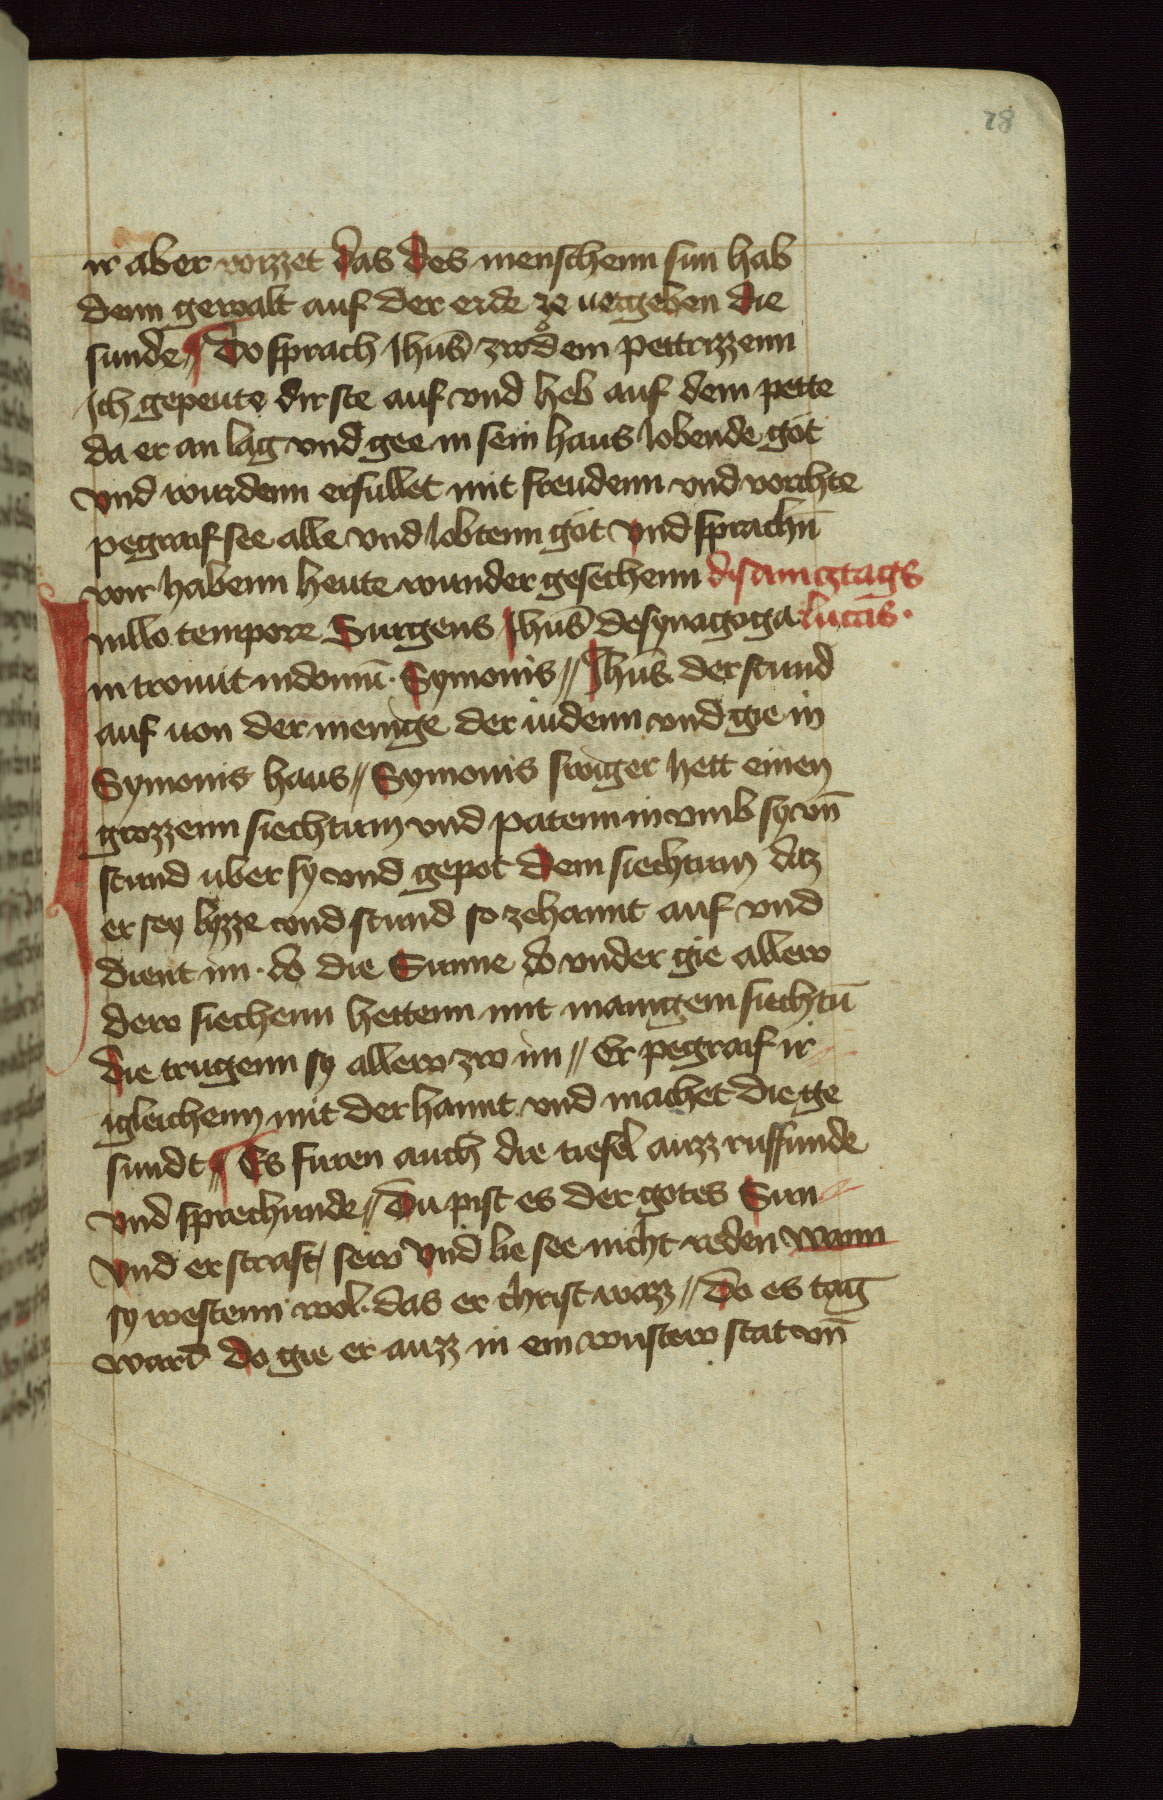 78
ir aber wizzet das des menschenn sun hab
denn gewalt auf der erde ze uergeben die
sunde // Do sprach Jhus̄ zwͦ dem pettrizzenn
Jch gepeute dir ste auf vnd heb auf dem pette
da er an lag vnd gee in sein haus lobende got
vnd wurdenn erfullet mit freudenn vnd vorchte
pegraif see alle vnd lobtenn got vnd sprachn̄
wir habenn heute wunder gesechenn des samcztags
In illo tempore Surgens Jhus̄ de synagoga lucas ·
introiuit in domū · Symonis // Jhus̄ der stund
auf uon der menige der iudenn vnd gie in
Symonis haus // Symonis swiger hett einen
grozzenn siechtum vnd patenn in vmb sy vn̄
stund uber sy vnd gepot dem siechtum daz
er sey lyzze vnd stund so zehannt auf vnd
dient im · do die Sunne do vnder gie allew
dew siechenn hettenn mit manigem siechtū
die trugenn sy allew zw im // Er pegraif ir
igleichenn mit der hannt vnd machet die ge
sundt // Es furen auch die tiefel auzz ruffunde
vnd sprechunde // Du pist es der gotes Sun
vnd er straft sew vnd lie see nicht reden wann
sy westenn wol · das er christ wazz // Do es tag
ward do gie er auzz in ein wustew stat vn̄